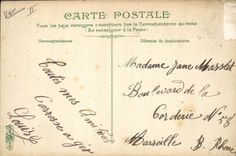 CARTE POSTALE
Tous les pays étrangers n'acceptent pas la Correspondance au recto
(Se renseigner à la Poste)
Correspondance
Adresse du destinataire
Toutes mes Amitiés
Louise
Madame Jane
Boulevard de la
Corderie Nº
Marseille B. Rhône